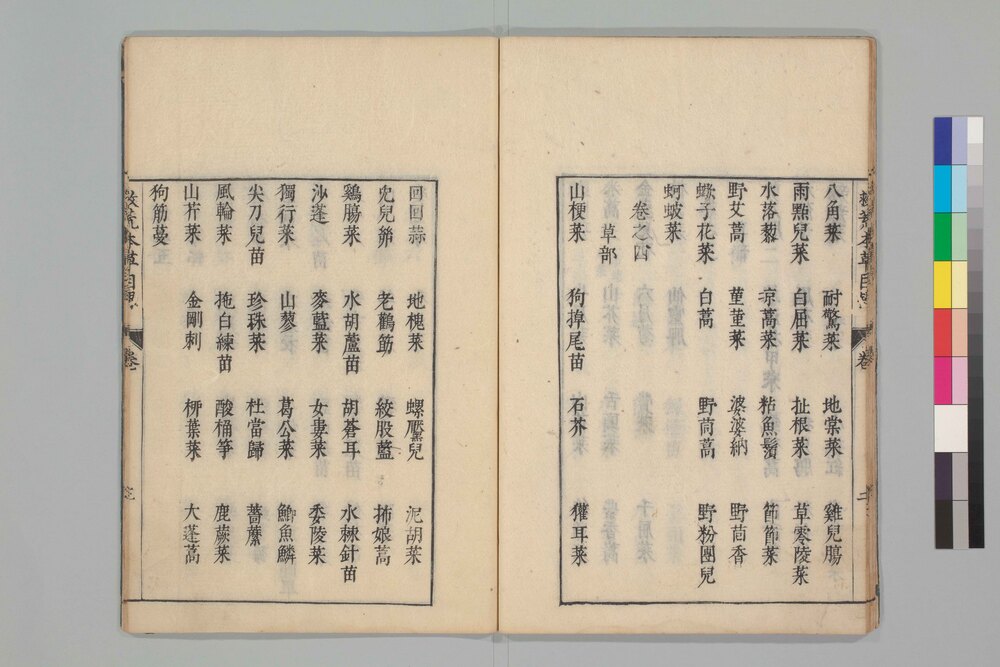 八角菜 耐驚菜 地棠菜 雞兒腸
雨點兒菜 白屈菜 扯根菜 草零陵菜
水落藜 京蒿菜 粘魚鬚 節節菜
野艾蒿 菫菫菜 婆婆納 野茴香
蠍子花菜 白蒿 野茼蒿 野粉團兒
蚵蚾菜
卷之四
草部
山梗菜 狗掉尾苗 石芥 獾耳菜
回回蒜 地槐菜 螺黶兒 泥胡菜
兎兒絲 老鸛筋 絞股藍 抪娘蒿
鷄腸菜 水胡蘆苗 胡蒼耳 水棘針苗
沙蓬 麥藍菜 女婁菜 委陵菜
獨行菜 山蓼 葛公菜 鯽魚鱗
尖刀兒苗 珍珠菜 杜當歸 薔蘼
風輪菜 拖白練苗 酸桶笋 鹿蕨菜
山芹菜 金剛刺 柳葉菜 大蓬蒿
狗筋蔓